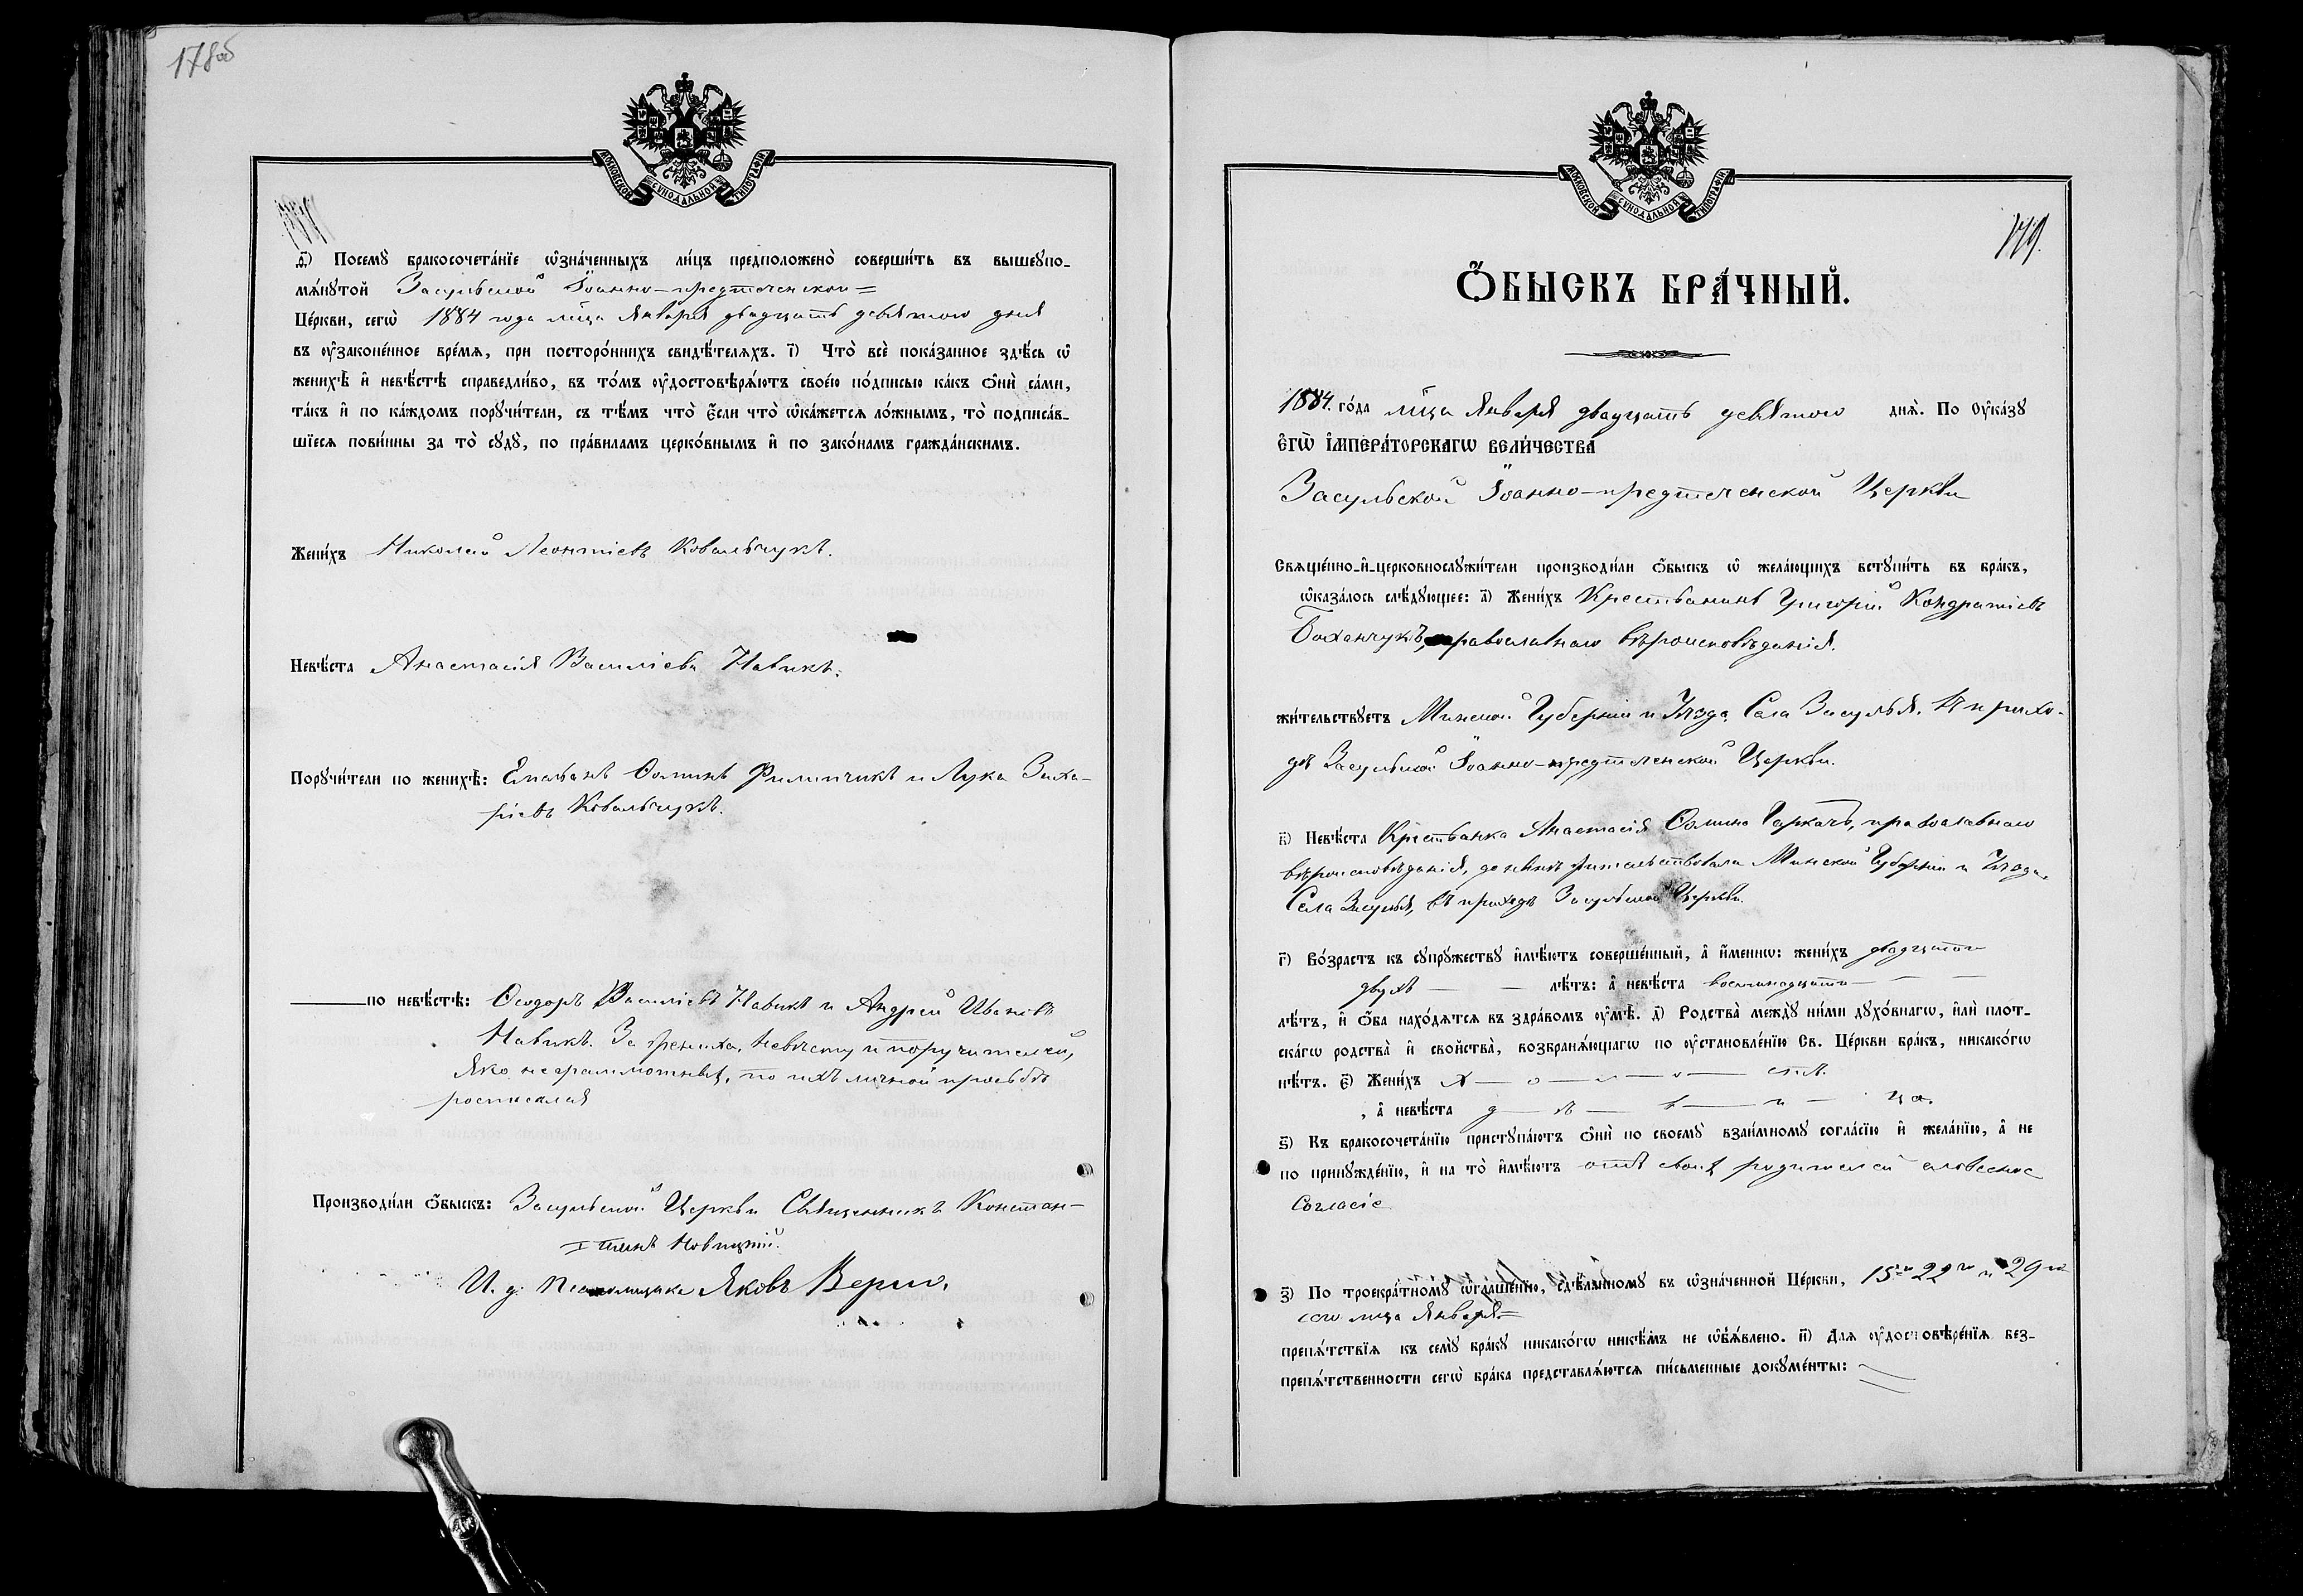 178об
МОСКОВСКОЙ СѴНОДАЛЬНОЙ ТИПОГРАФІИ
ѳ҃) Посемꙋ бракосочета́нїе ѡ҆зна́ченныхъ ли́цъ предположено̀ соверши́ть въ вышеꙋпо-
мѧ́нꙋтой Засульской Іоанно-предтеченской=
Це́ркви, сегѡ̀ 1884 года м͠ца Января двадцать девятого дня
въ ᲂу҆законе́нное вре́мѧ, при посторо́ннихъ свидѣ́телѧхъ. і҃) Что̀ всѐ пока́занное здѣ́сь ѡ҆
женихѣ̀ и҆ невѣ́стѣ справедли́во, въ то́мъ ᲂу҆достовѣрѧ́ютъ свое́ю по́дписью ка́къ ѻ҆нѝ са́ми,
та́къ и҆ по ка́ждомъ порꙋчи́тели, съ тѣ́мъ что̀ є҆́сли что̀ ѡ҆ка́жетсѧ ло́жнымъ, то̀ подписа́в-
шїесѧ пови́нны за то̀ сꙋдꙋ̀, по пра́виламъ церко́внымъ и҆ по зако́намъ гражда́нскимъ.
Жени́хъ Николай Леонтіевъ Ковальчукъ.
Невѣ́ста Анастасія Василіева Навикъ.
Порꙋчи́тели по женихѣ̀: Емельянъ Ѳоминъ Филипчикъ и Лука Заха-
ріевъ Ковальчукъ.
по невѣ́стѣ: Ѳеодоръ Василіевъ Навикъ и Андрей Ивановъ
Навикъ. За жениха, невѣсту и поручителей,
яко неграмотныхъ, по ихъ личной просьбѣ
росписался
Производи́ли ѻ҆́быскъ: Засульской Церкви Священникъ Констан-
тинъ Новицкій.
И. д. Псаломщика Яковъ
МОСКОВСКОЙ СѴНОДАЛЬНОЙ ТИПОГРАФІИ
179.
Ѻ҆́БЫСКЪ БРА́ЧНЫЙ.
1884. го́да м͠ца Января двадцать девятого днѧ̀. По Оу҆ка́зꙋ
Є҆ГѠ̀ И҆МПЕРА́ТОРСКАГѠ ВЕЛИ́ЧЕСТВА
Засульской Іоанно-предтеченской Церкви
Свѧще́нно-и҆-церковнослꙋжи́тели производи́ли ѻ҆́быскъ ѡ҆ жела́ющихъ встꙋпи́ть въ бра́къ,
ѡ҆каза́лось слѣ́дꙋющее: а҃) Жени́хъ Крестьянинъ Григорій Кондратіевъ
Боханчукъ, православнаго вѣроисповѣданія.
жи́тельствꙋетъ Минской Губерніи и Уѣзда, Села Засулья. въ прихо-
дѣ Засульской Іоанно-предтеченской Церкви.
в҃) Невѣ́ста Крестьянка Анастасія Ѳомина Гаркачъ, православнаго
вѣроисповѣданія, до нынѣ жительствовала Минской Губерніи и Уѣзда,
Села Засулья, въ приходѣ Засульской Церкви.
г҃) Во́зрастъ къ сꙋпрꙋ́жествꙋ и҆мѣ́ютъ соверше́нный, а҆ и҆́меннѡ: жени́хъ двадцати
двухъ — — лѣ́тъ: а҆ невѣ́ста восемнадцати — — —
лѣ́тъ, и҆ ѻ҆́ба нахо́дѧтсѧ въ здра́вомъ ᲂу҆мѣ̀. д҃) Родства̀ междꙋ̀ ни́ми дꙋхо́внагѡ, и҆лѝ плот-
ска́гѡ родства̀ и҆ сво́йства̀, возбранѧ́ющагѡ по ᲂу҆становле́нїю Св. Це́ркви бра́къ, никако́гѡ
нѣ́тъ. є҃) Жени́хъ х — о — л — о — стъ.
, а҆ невѣ́ста д — ѣ — в — и — ца.
ѕ҃) Къ бракосочета́нїю пристꙋпа́ютъ ѻ҆нѝ по своемꙋ̀ взаи́мномꙋ согла́сїю и҆ жела́нїю, а҆ не
по принꙋжде́нїю, и҆ на то̀ и҆мѣ́ютъ отъ своихъ родителей словесное
согласіе
з҃) По троекра́тномꙋ ѡ҆глаше́нїю, сдѣ́ланномꙋ въ ѡ҆зна́ченной Це́ркви, 15го 22го и 29го
сего м͠ца Января=
препѧ́тствїѧ къ семꙋ̀ бра́кꙋ никако́гѡ никѣ́мъ не ѡ҆б̾ѧ́влено. и҃) Длѧ ᲂу҆достовѣре́нїѧ без-
препѧ́тственности сегѡ̀ бра́ка представлѧ́ютсѧ пи́сьменные докꙋме́нты: